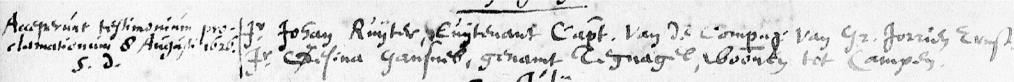 Acceperunt testimonium pro-
clamationum 8 Augusti 1626.
S. D.
Jr Johan Ruijter, Luijtenant Capt. van de Compag. van Gr. Ernst
Jr Gansneb, genamt Tegnagel, woonen tot Campen.